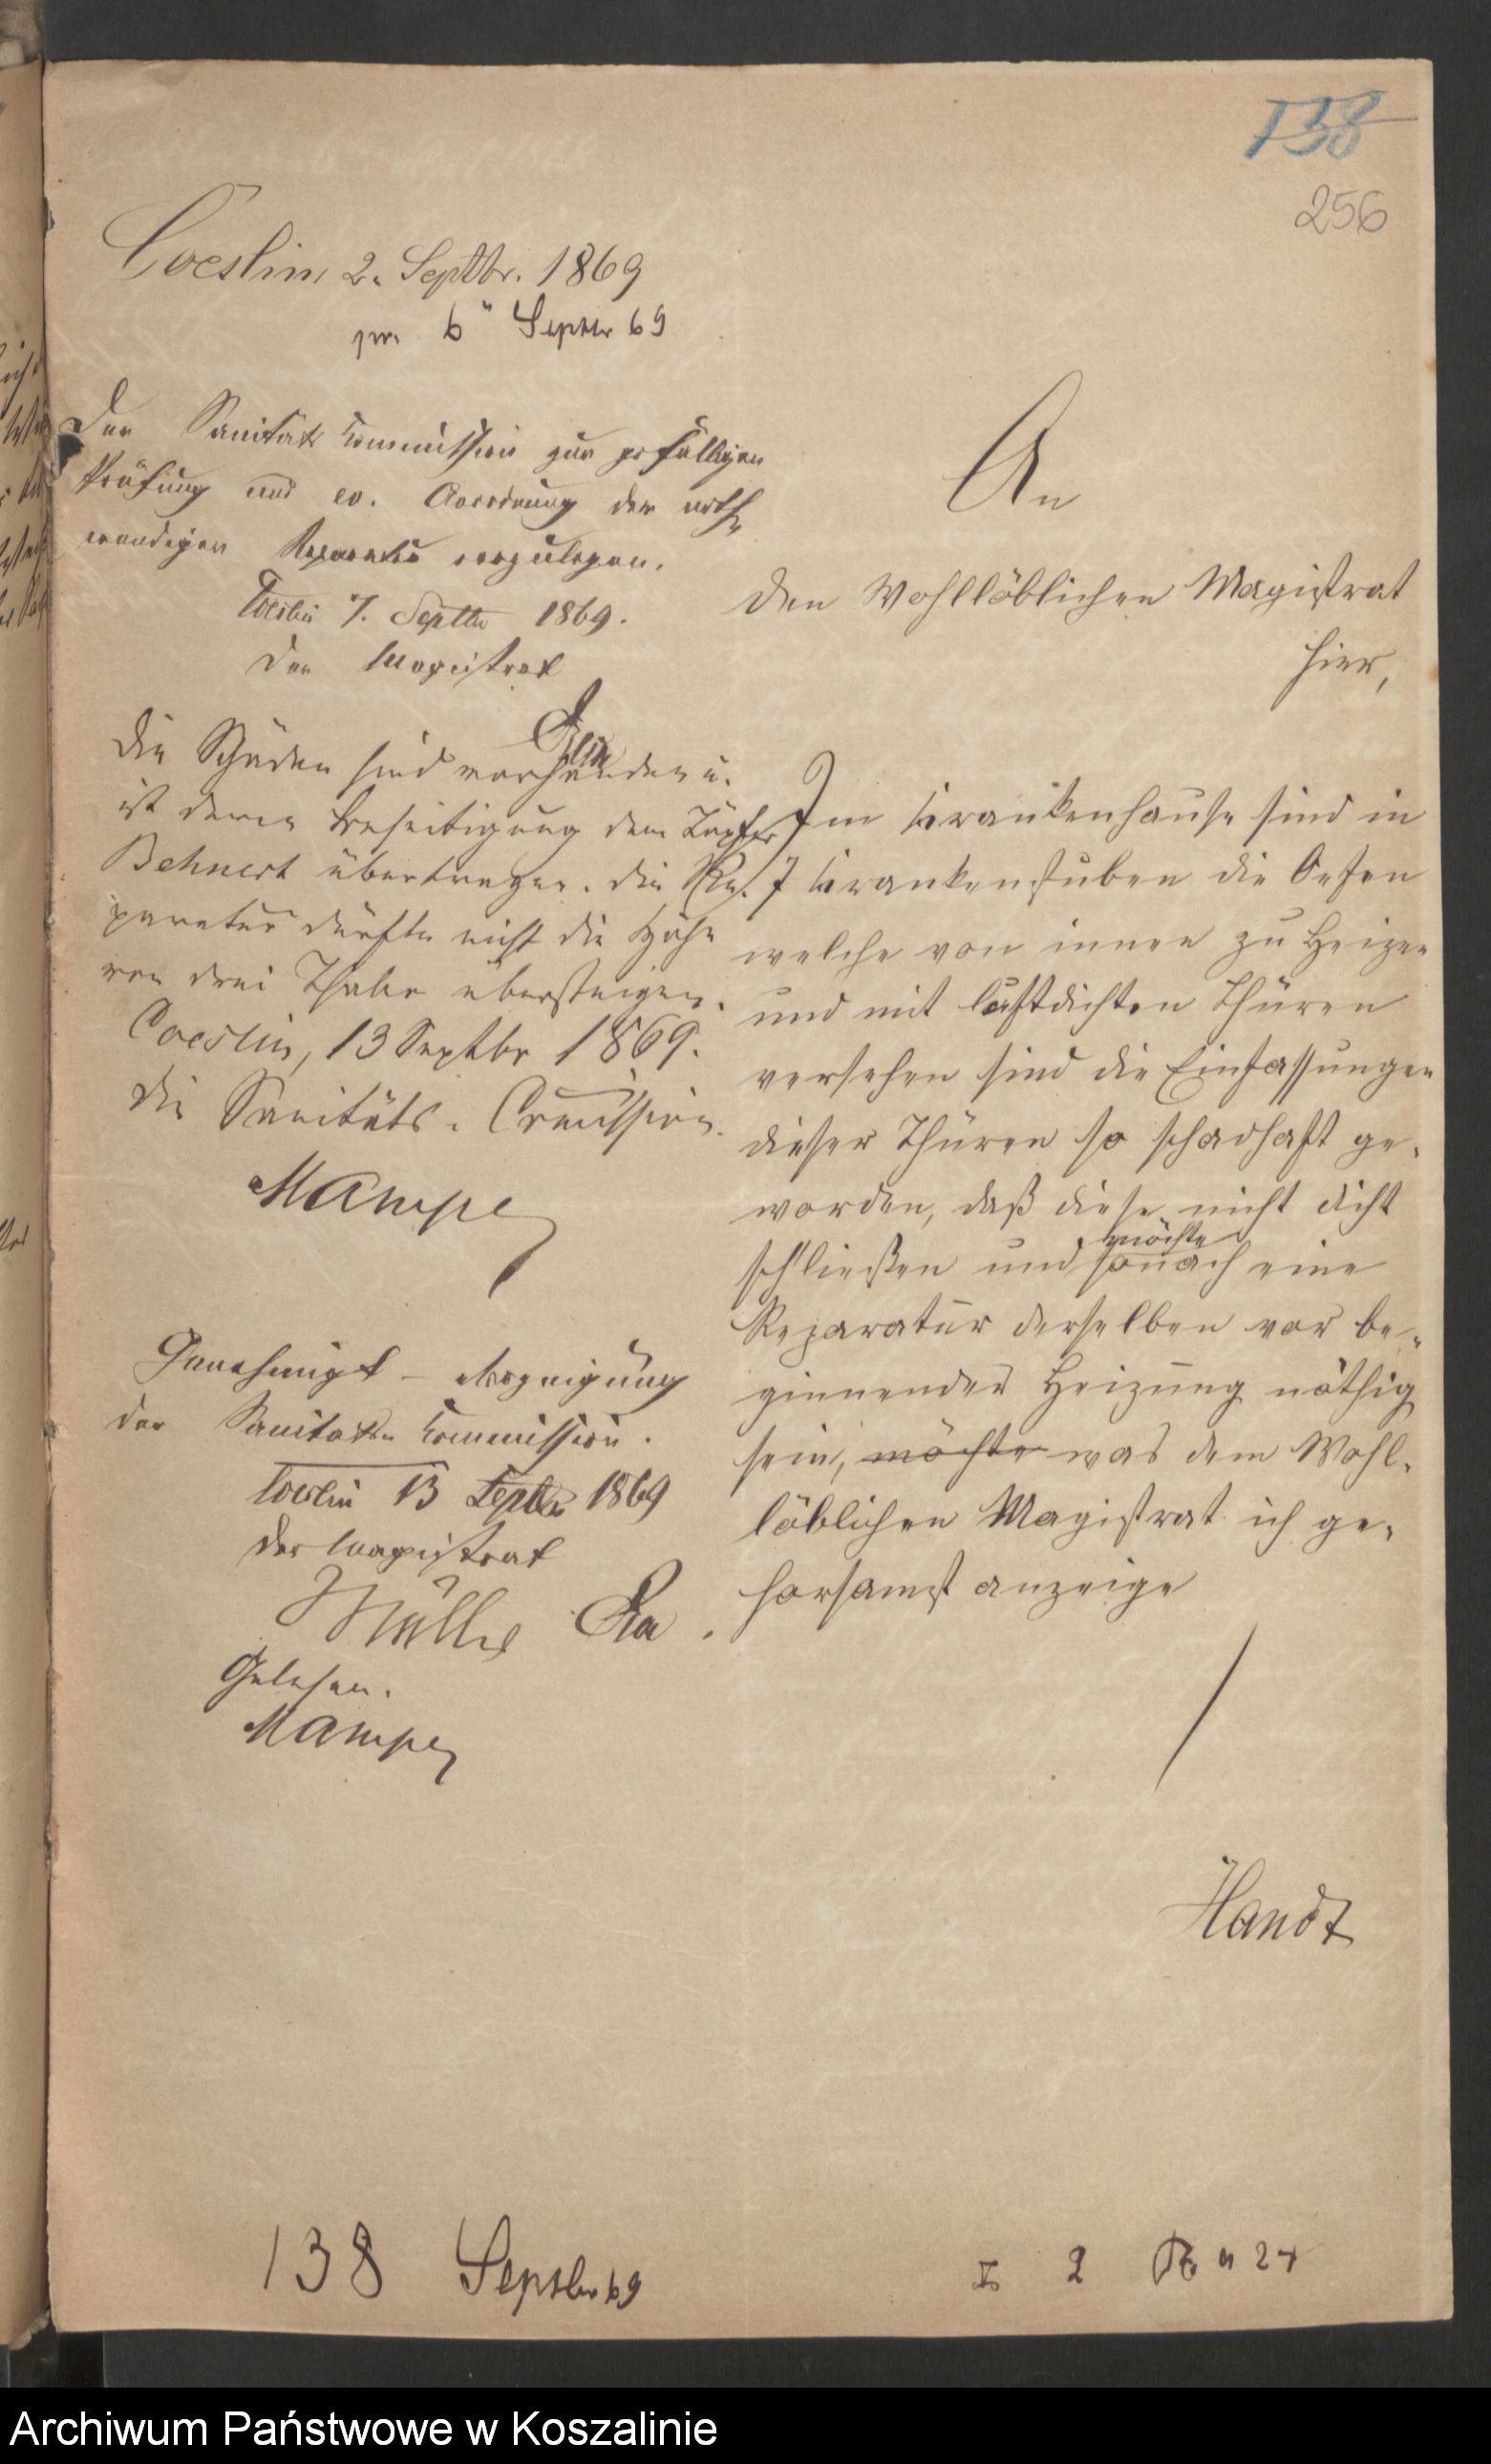 138
256
Coeslin 2. Septbr. 1869
pr. 6" Septbr 69
Der Sanitäts Kommission zur gefälligen
Prüfung und ev. Anordnung der noth-
wendigen Reparatur vorzulegen.
Coeslin 7. Septbr 1869.
Der Magistrat
Die Schäden sind vorhanden u.
ist deren Beseitigung dem Töpfer
Behnert übertragen. Die Re-
paratur dürfte nicht die Höhe
von drei Thaler übersteigen.
Coeslin, 13 Septbr 1869.
Die Sanitäts-Commission.
Mampe
Genehmigt –
der Sanitäts Kommission.
Coeslin 13 Septbr 1869
Der Magistrat
Müller
Gelesen.
Mampe
An
den Wohllöblichen Magistrat
hier,
Im Krankenhause sind in
7 Krankenstuben die Oefen
welche von innen zu Heizen
und mit luftdichten Thüren
versehen sind die Einfassungen
dieser Thüren so schadhaft ge-
worden, daß diese nicht dicht
möchte
schließen und sonach eine
Reparatur derselben vor be-
ginnender Heizung nöthig
sein, möchte was dem Wohl-
löblichen Magistrat ich ge-
horsamst anzeige
Handt
138 Septbr 69
I 2 24